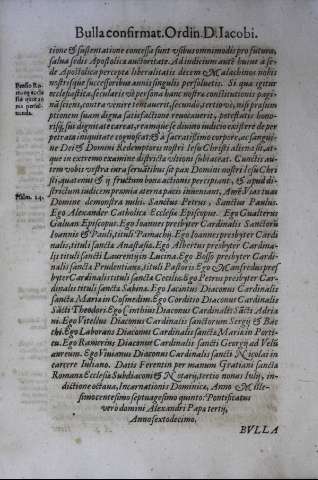 Bulla confirmat. Ordin. D. Iacobi.
tione & sustentatione concessa sunt vsibus omnimodis pro futura,
salua sedis Apostolica auctoritate. Ad indicium autē huius à se-
de Apostolica percepta liberalitatis decem Malachinos nobis
nostrisque successoribus annis singulis persoluetis. Si qua igitur
ecclesiastica, secularis-vè persona hanc nostra constitutionis pagi-
nā sciens, contra venire temtauerit, secundo, tertiò-vè, nisi præsum-
ptionem suam digna satisfactione reuocauerit, potestatis hono-
risque, sui dignitate careat, reamque se diuino iudicio existere de per-
petrata iniquitate cognoscat, & à sacratissimo corpore, ac sangui-
ne Dei, & Domini Redemptoris nostri Iesu Christi aliena sit, at-
que in extremo examine districta vltioni subiaceat. Cunctis au-
tem vobis vestra iura seruātibus sit pax Domini nostri Iesu Chri
sti, quatenus & hi fructum bona actionis percipiant, & apud di-
strictum iudicem præmia aterna pacis inueniant, Amē Vias tuas
Domine demonstra mihi. Sanctus Petrus, Sanctus Paulus.
Ego Alexander Catholica Ecclesia Episcopus. Ego Gualterus
Episcopus. Ego Ioannes presbyter Cardinalis Sanctorū
Ioannis & Pauli, tituli Pamachij. Ego Ioannes presbyter Cardi
nalis, tituli sancta Anastasia. Ego Albertus presbyter Cardina-
lis tituli sancti Laurentij in Lucina. Ego Boso presbyter Cardi-
nalis sancta Prudentiana, tituli Pastoris. Ego Manfredus pres
byter Cardinalis tituli sancta Cecilia. Ego Petrus presbyter Car-
dinalis, tituli sancta Sabina. Ego Iacintus Diaconus Cardinalis
sancta Maria in Cosmedim. Ego Diaconus Cardinalis
Sācti Theodori. Ego Cinthius Diaconus Cardinalis Sācti Adria
ni. Ego Vitellius Diaconus Cardinalis sanctorum Sergij & Bac
chi. Ego Laborans Diaconus Cardinalis sancta Maria in Porti-
cu. Ego Ramerius Diaconus Cardinalis sancti Georgij ad Velū
aureum. Ego Viuianus Diaconus Cardinalis sancti Nicolai in
carcere Iuliano. Datis Ferentin per manum Gratiani sancta
Romana Ecclesia Subdiaconi & Notarij, tertio nonas Iulij, in-
dictione octaua, Incarnationis Dominica, Anno Mille-
simo centesimo septuagesimo quinto. Pontificatus
vero domini Alexandri Papa tertij,
Anno sexto decimo.
BVLLA
Psalm. 24.